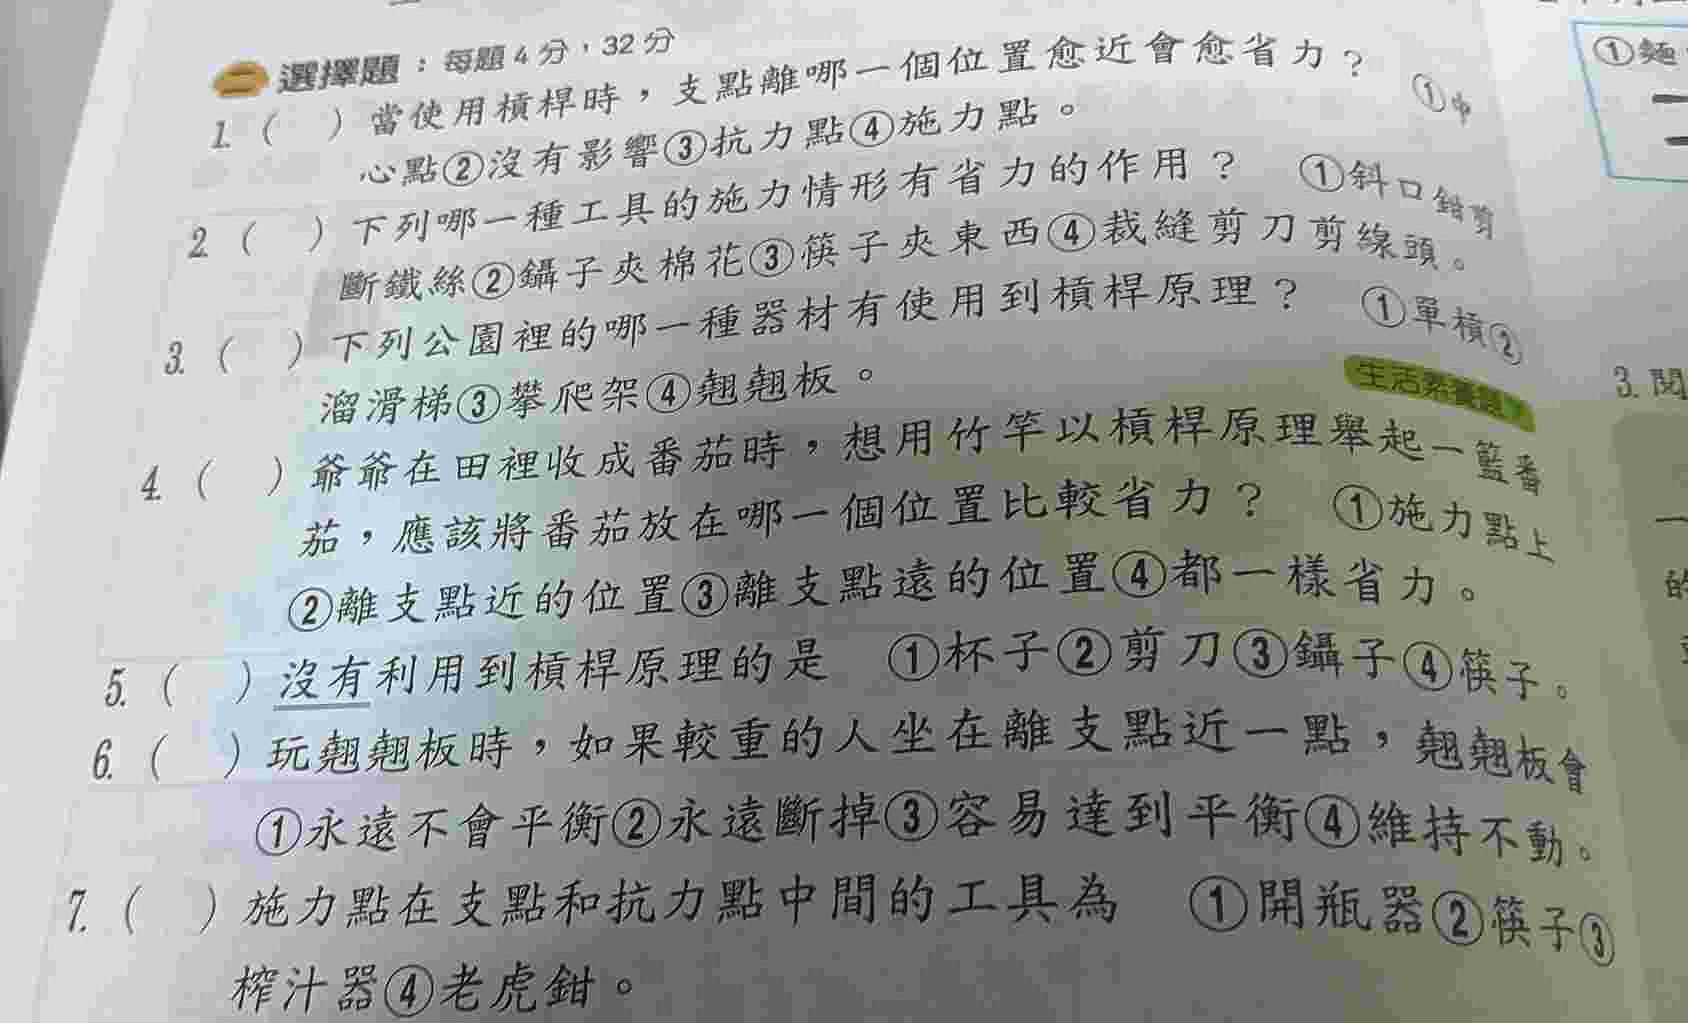 二 選擇題:每題4分,32分
1.( )當使用槓桿時,支點離哪一個位置愈近會愈省力? ①中
心點②沒有影響③抗力點④施力點。
2.( )下列哪一種工具的施力情形有省力的作用? ①斜口鉗剪
斷鐵絲②鑷子夾棉花③筷子夾東西④裁縫剪刀剪線頭。
3.( )下列公園裡的哪一種器材有使用到槓桿原理? ①單槓②
溜滑梯③攀爬架④翹翹板。
生活素養題
4.( )爺爺在田裡收成番茄時,想用竹竿以槓桿原理舉起一籃番
茄,應該將番茄放在哪一個位置比較省力? ①施力點上
②離支點近的位置③離支點遠的位置④都一樣省力。
5.( )沒有利用到槓桿原理的是 ①杯子②剪刀③鑷子④筷子。
6.( )玩翹翹板時,如果較重的人坐在離支點近一點,翹翹板會
①永遠不會平衡②永遠斷掉③容易達到平衡④維持不動。
7.( )施力點在支點和抗力點中間的工具為 ①開瓶器②筷子③
榨汁器④老虎鉗。
①麵
3.閱
一
的